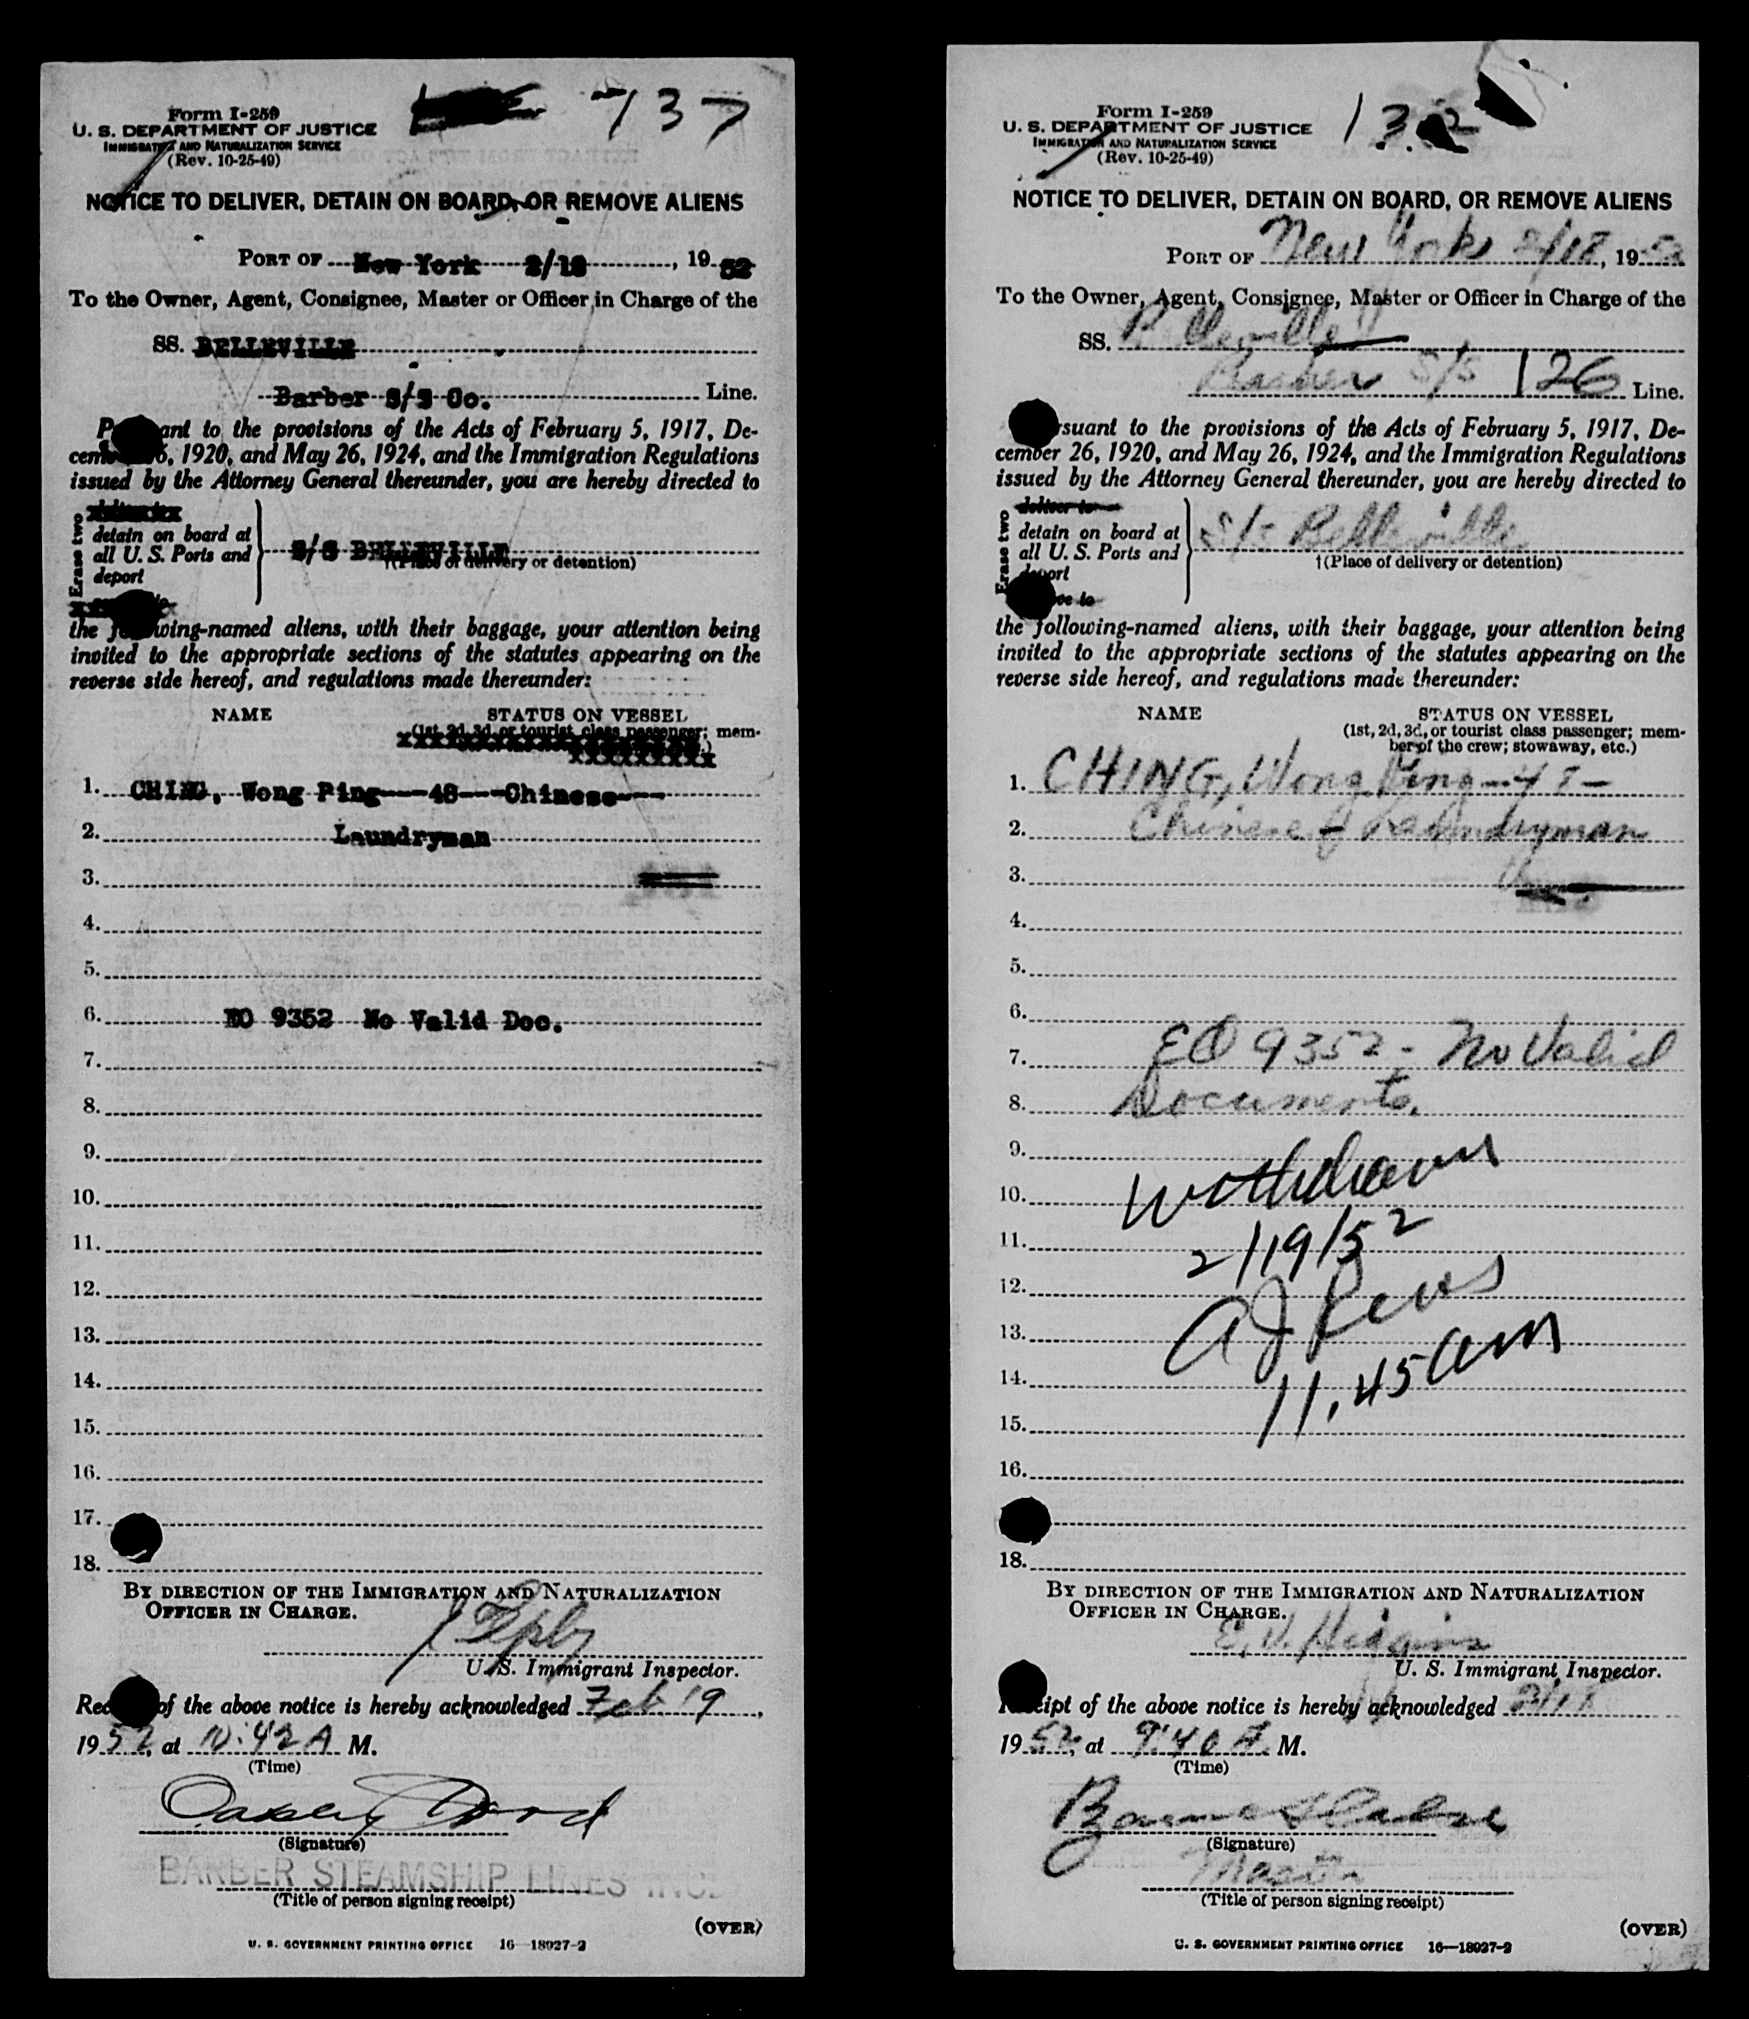 Form I-259
U. S. DEPARTMENT OF JUSTICE
IMMIGRATION AND NATURALIZATION SERVICE
(Rev. 10-25-49)
737
NOTICE TO DELIVER, DETAIN ON BOARD, OR REMOVE ALIENS
PORT OF New York 2/18, 1952
To the Owner, Agent, Consignee, Master or Officer in Charge of the
SS. BELLEVILLE
Barber S/S Co. Line.
Pursuant to the provisions of the Acts of February 5, 1917, De-
cember 26, 1920, and May 26, 1924, and the Immigration Regulations
issued by the Attorney General thereunder, you are hereby directed to
Erase two
detain on board at
all U. S. Ports and
deport
S/S BELLEVILLE
†(Place of delivery or detention)
the following-named aliens, with their baggage, your attention being
invited to the appropriate sections of the statutes appearing on the
reverse side hereof, and regulations made thereunder:
NAME STATUS ON VESSEL
(1st, 2d, 3d, or tourist class passenger; mem-
1. CHING, Wong Ping---48---Chinese---
2. Laundryman
3.
4.
5.
6. EO 9352 No Valid Doc.
7.
8.
9.
10.
11.
12.
13.
14.
15.
16.
17.
18.
BY DIRECTION OF THE IMMIGRATION AND NATURALIZATION
OFFICER IN CHARGE.
U. S. Immigrant Inspector.
Receipt of the above notice is hereby acknowledged Feb 19,
1952, at 10:42 A M.
(Time)
(Signature)
BARBER STEAMSHIP LINES INC.
(Title of person signing receipt)
(OVER)
U. S. GOVERNMENT PRINTING OFFICE 16—18027-2
Form I-259
U. S. DEPARTMENT OF JUSTICE
IMMIGRATION AND NATURALIZATION SERVICE
(Rev. 10-25-49)
132
NOTICE TO DELIVER, DETAIN ON BOARD, OR REMOVE ALIENS
PORT OF New York 2/18, 1952
To the Owner, Agent, Consignee, Master or Officer in Charge of the
SS. Belleville
Barber S/S 126 Line.
Pursuant to the provisions of the Acts of February 5, 1917, De-
cember 26, 1920, and May 26, 1924, and the Immigration Regulations
issued by the Attorney General thereunder, you are hereby directed to
Erase two
deliver to
detain on board at
all U. S. Ports and
deport
remove to
S/S Belleville
†(Place of delivery or detention)
the following-named aliens, with their baggage, your attention being
invited to the appropriate sections of the statutes appearing on the
reverse side hereof, and regulations made thereunder:
NAME STATUS ON VESSEL
(1st, 2d, 3d, or tourist class passenger; mem-
ber of the crew; stowaway, etc.)
1. CHING, Wong Ping - 48 -
2. Chinese - Laundryman
3.
4.
5.
6.
7. EO 9352 - No Valid
8. Documents.
9.
10. Withdrawn
11. 2/19/52
12.
13.
14. 11.45 am
15.
16.
18.
BY DIRECTION OF THE IMMIGRATION AND NATURALIZATION
OFFICER IN CHARGE.
E. V. Higgins
U. S. Immigrant Inspector.
Receipt of the above notice is hereby acknowledged 2/18
1952, at 9:40 A. M.
(Time)
(Signature)
Master
(Title of person signing receipt)
(OVER)
U. S. GOVERNMENT PRINTING OFFICE 16—18027-2